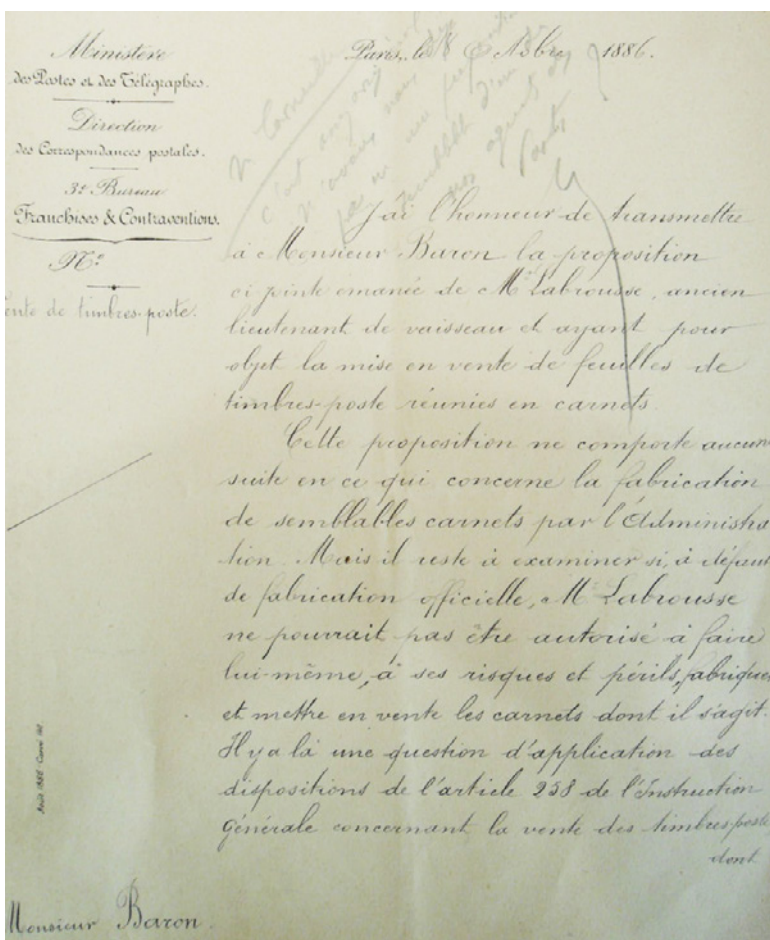 Ministère
des Postes et des Télégraphes.
Direction
des Correspondances postales.
3e Bureau
Franchises & Contraventions.
No
ente de timbres-poste.
Paris, le 8 Octobre 1886.
J'ai l'honneur de transmettre
à Monsieur Baron la proposition
ci jointe émanée de Mr Labrousse, ancien
lieutenant de vaisseau et ayant pour
objet la mise en vente de feuilles de
timbres-poste réunies en carnets.
Cette proposition ne comporte aucune
suite en ce qui concerne la fabrication
de semblables carnets par l'Administra
tion. Mais il reste à examiner si, à défaut
de fabrication officielle, Mr Labrousse
ne pourrait pas être autorisé à faire
lui-même, à ses risques et périls, fabriquer
et mettre en vente les carnets dont il s'agit.
Il y a là une question d'application des
dispositions de l'article 238 de l'Instruction
Générale concernant la vente des timbres-poste
dont
Août 1886
Monsieur Baron.